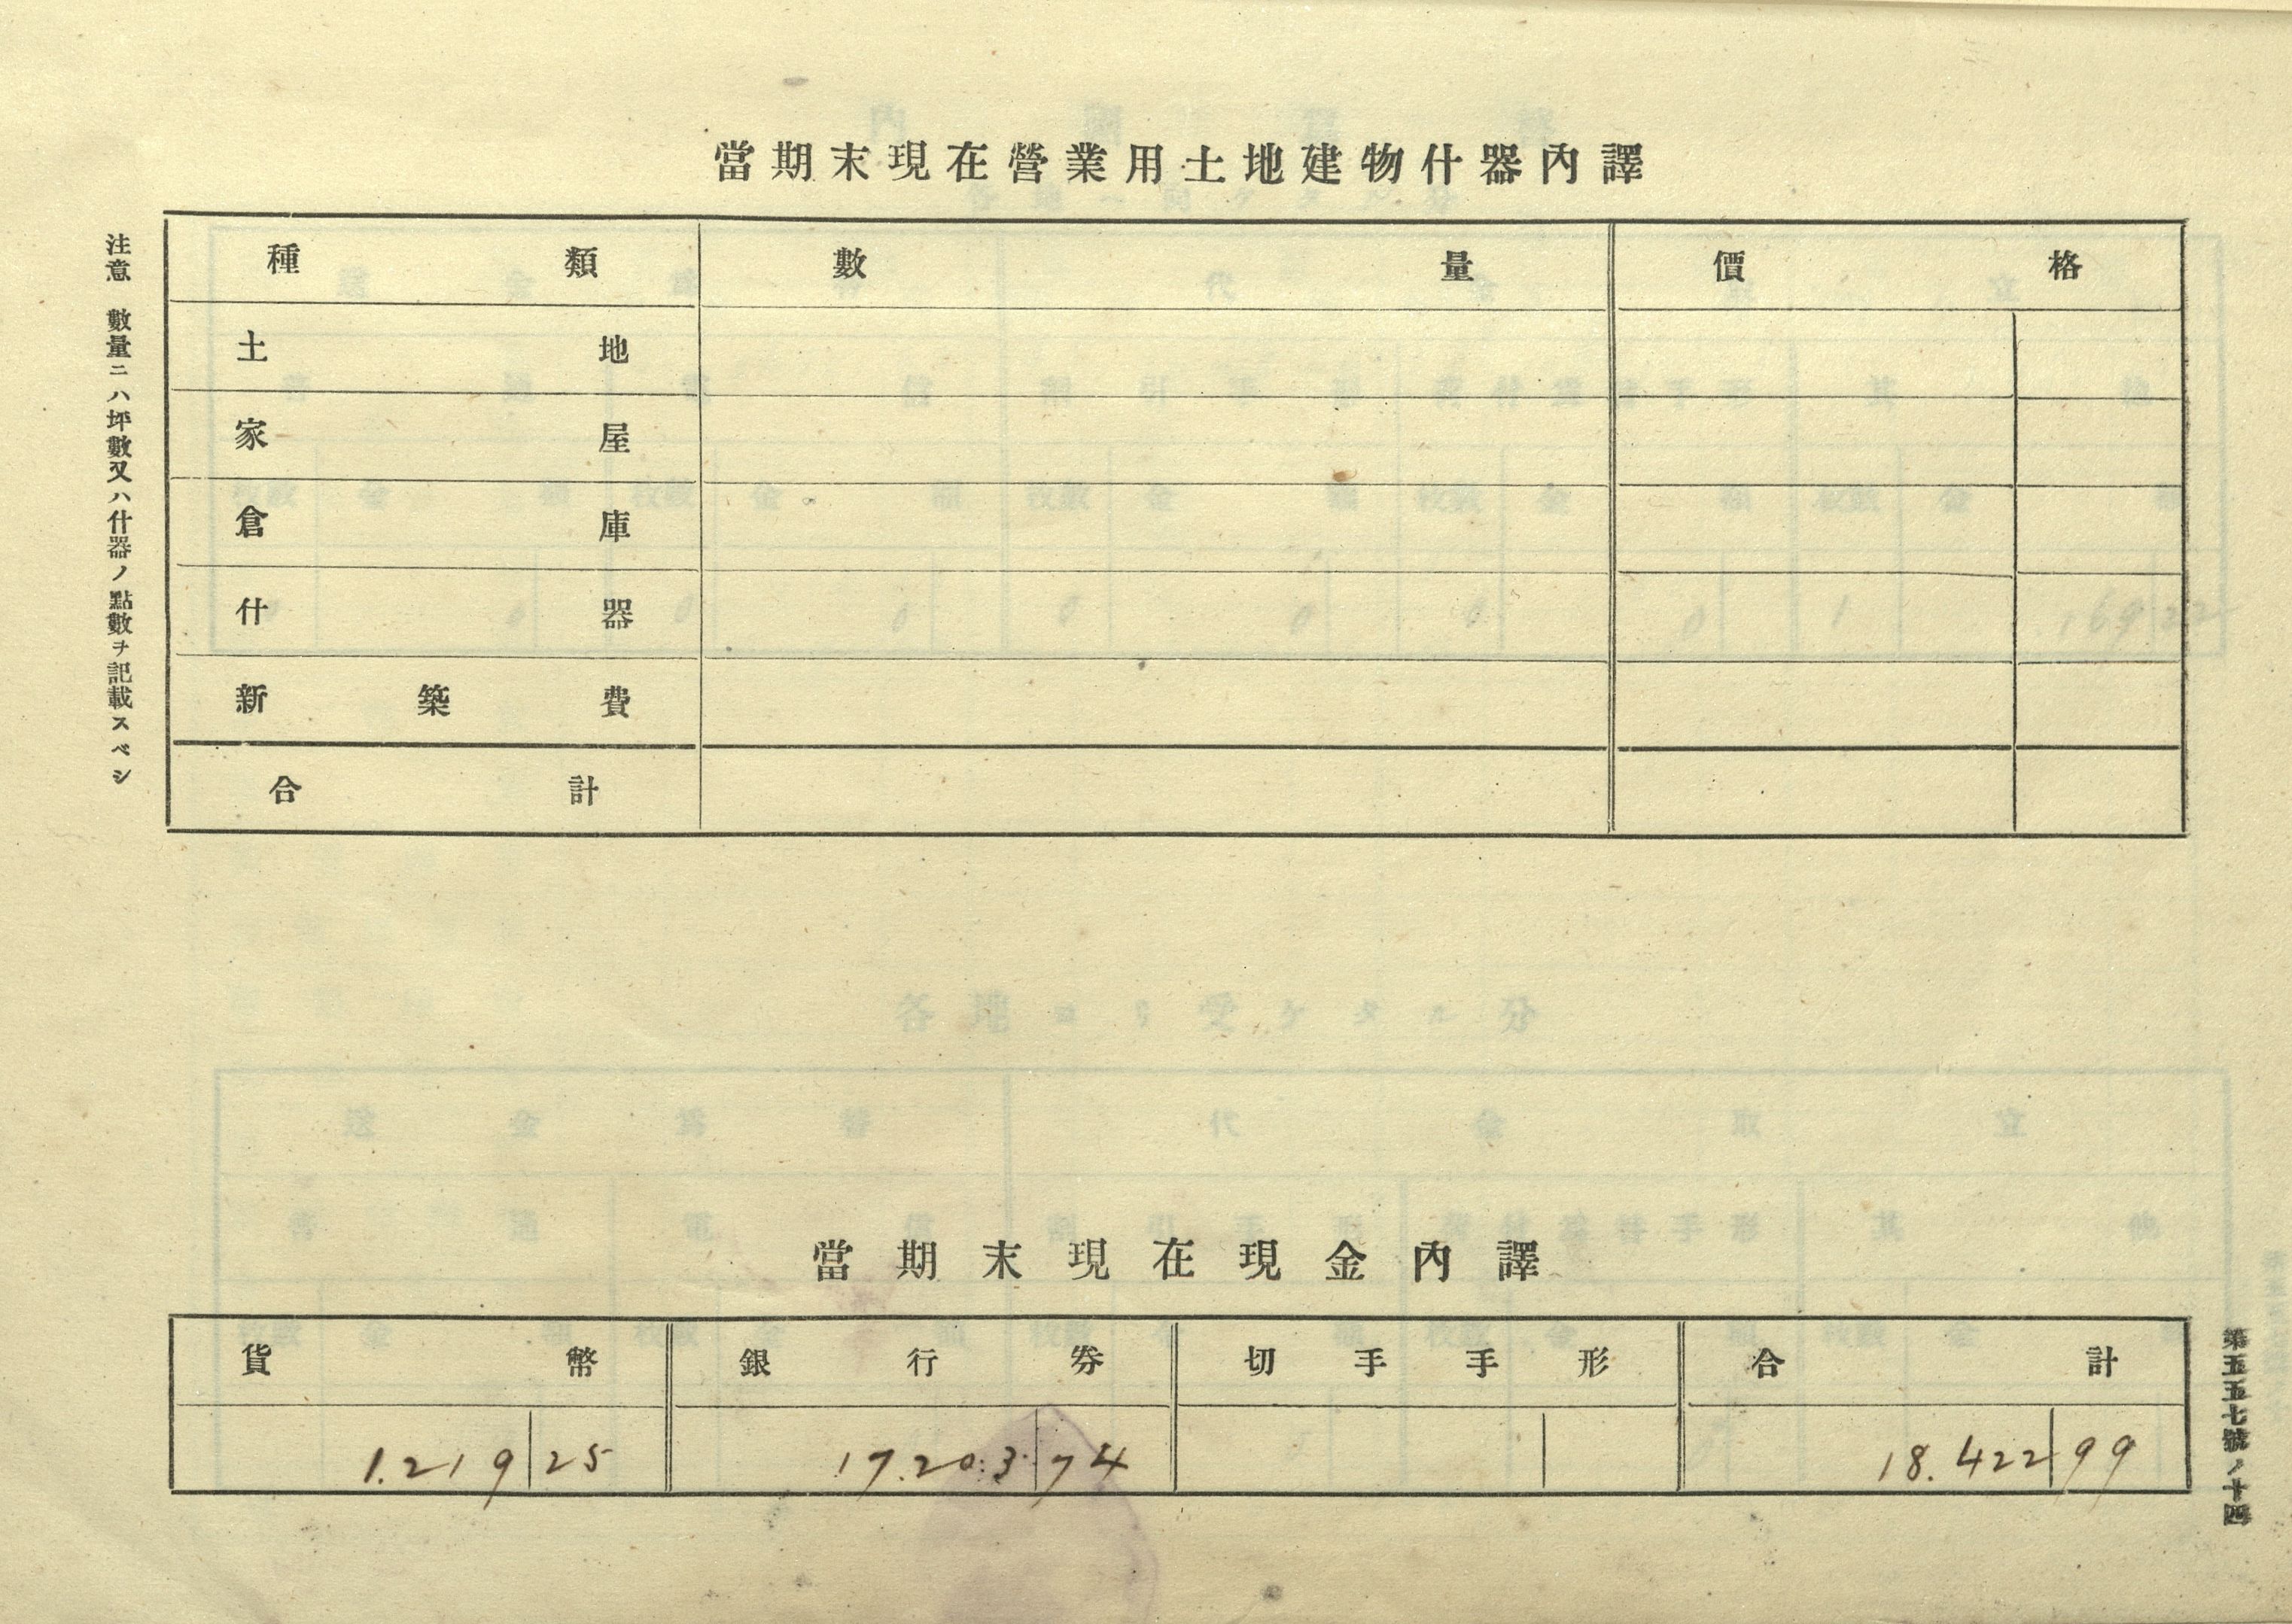 當期末現在營業用土地建物什器內譯
種類 數量 價格
土地
家屋
倉庫
什器
新築費
合計
注意 數量ニハ坪數又ハ什器ノ點數ヲ記載スベシ
當期末現在現金內譯
貨幣 銀行券 切手手形 合計
1.219 25 17.203 74 18.422 99
第五五七號ノ十四